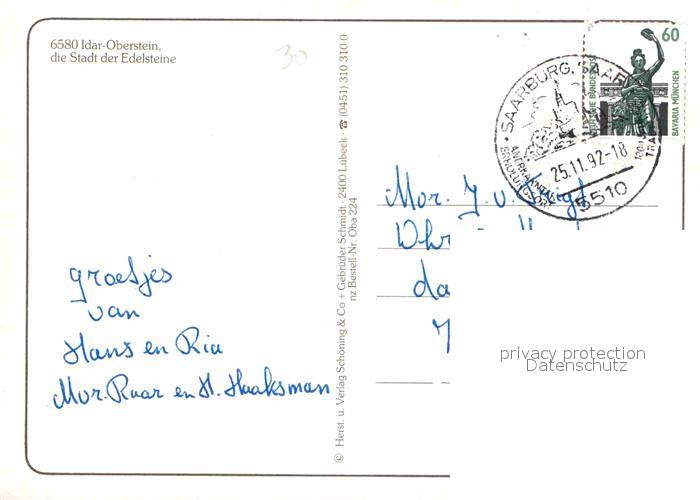 6580 Idar-Oberstein,
die Stadt der Edelsteine
30
groetjes
van
Hans en Ria
Mvr. Ruar en H. Haaksman
© Herst. u. Verlag Schöning & Co + Gebrüder Schmidt · 2400 Lübeck · ☎ (0451) 310 310 0
nz Bestell-Nr. Oba 224
60
BAYARIA MÜNCHEN
SAARBURG, SAAR
25.11.92-18
5510
ANERKANNTER
ERHOLUNGSORT
Mvr. J. v.
da
privacy protection
Datenschutz